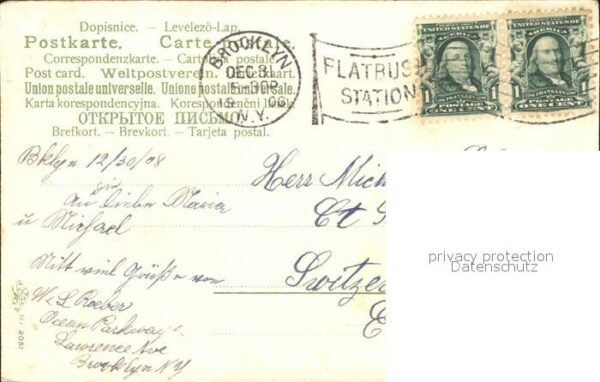 Dopisnice. – Levelező-Lap.
Postkarte. Carte
Correspondenzkarte. – Cartolina postale.
Post card. – Weltpostverein. –
Union postale universelle. Unione postale universale.
Karta korespondencyjna. Korespondenční lístek.
ОТКРЫТОЕ ПИСЬМО
Brefkort. – Brevkort. – Tarjeta postal.
BROOKLYN
DEC 31
5-30P
19 08
N.Y.
FLATBUSH
STATION
UNITED STATES OF
AMERICA
1 1
POSTAGE
ONE CENT
UNITED STATES OF
AMERICA
1 1
POSTAGE
ONE CENT
Bklyn 12/30/08
An die liebe Maria
u Michael
Mitt viel Grüße von
W L Roever
Ocean Parkway
Lawrence Ave
Brooklyn NY
Herr Mich
Ct
Switzer
E
privacy protection
Datenschutz